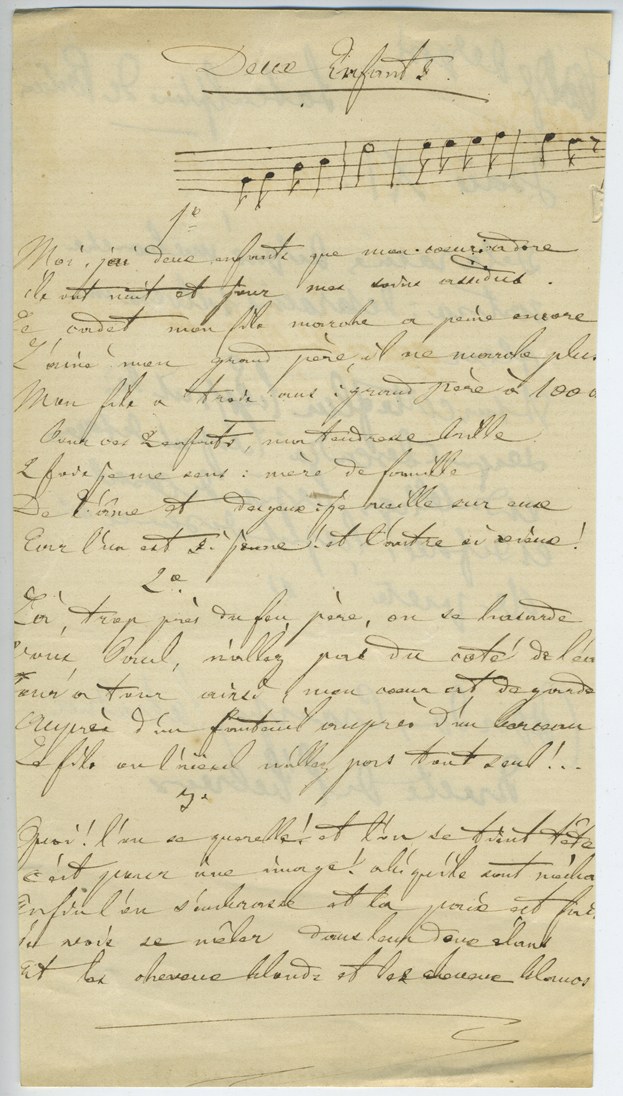 Deux Enfants.
1er
Moi, j'ai deux enfants que mon coeur adore
ils ont nuit et jour mes soins assidus.
Le cadet mon fils marche a peine encore
L'ainé mon grand père, il ne marche plus
Mon fils a trois ans : grand père à 100 a
Pour ces 2 enfants, ma tendresse brille
2 fois je me sens : mère de famille
De l'âme et des yeux : je veille sur eux
Car l'un est si jeune ! et l'autre si vieux !
2e
Là, trop près du feu père, on se hasarde
vous, Paul, n'allez pas du coté de l'ea
our a tour ainsi, mon coeur est de garde
Auprès d'un fauteuil auprès d'un berceau
Le fils ou l'aïeul n'allez pas tout seul !...
3e
Quoi ! l'on se querelle ! et l'on se tient tête
c'est pour une image ! ah qu'ils sont mécha
Enfin l'on s'embrasse et la paix est fai
et je vois se mêler dans leur doux élans
Et les cheveux blonds et les cheveux blancs